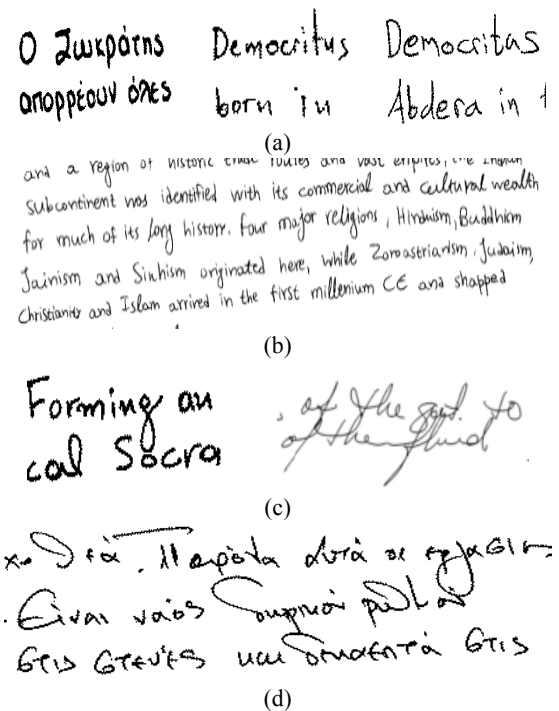 Ο Σωκράτης Democritus Democritas
απορρέουν όλες born in Abdera in
(a)
and a region of historic trade routes and vast empires, the Indian
subcontinent was identified with its commercial and cultural wealth
for much of its long history. Four major religions, Hinduism, Buddhism
Jainism and Sikhism originated here, while Zoroastrianism, Judaism,
Christianity and Islam arrived in the first millenium CE and shapped
(b)
Forming an
cal Socra
, of the gout. to
of the fluid
(c)
Παρόλα αυτά σε
. Είναι ναός
στις στενές και στις
(d)